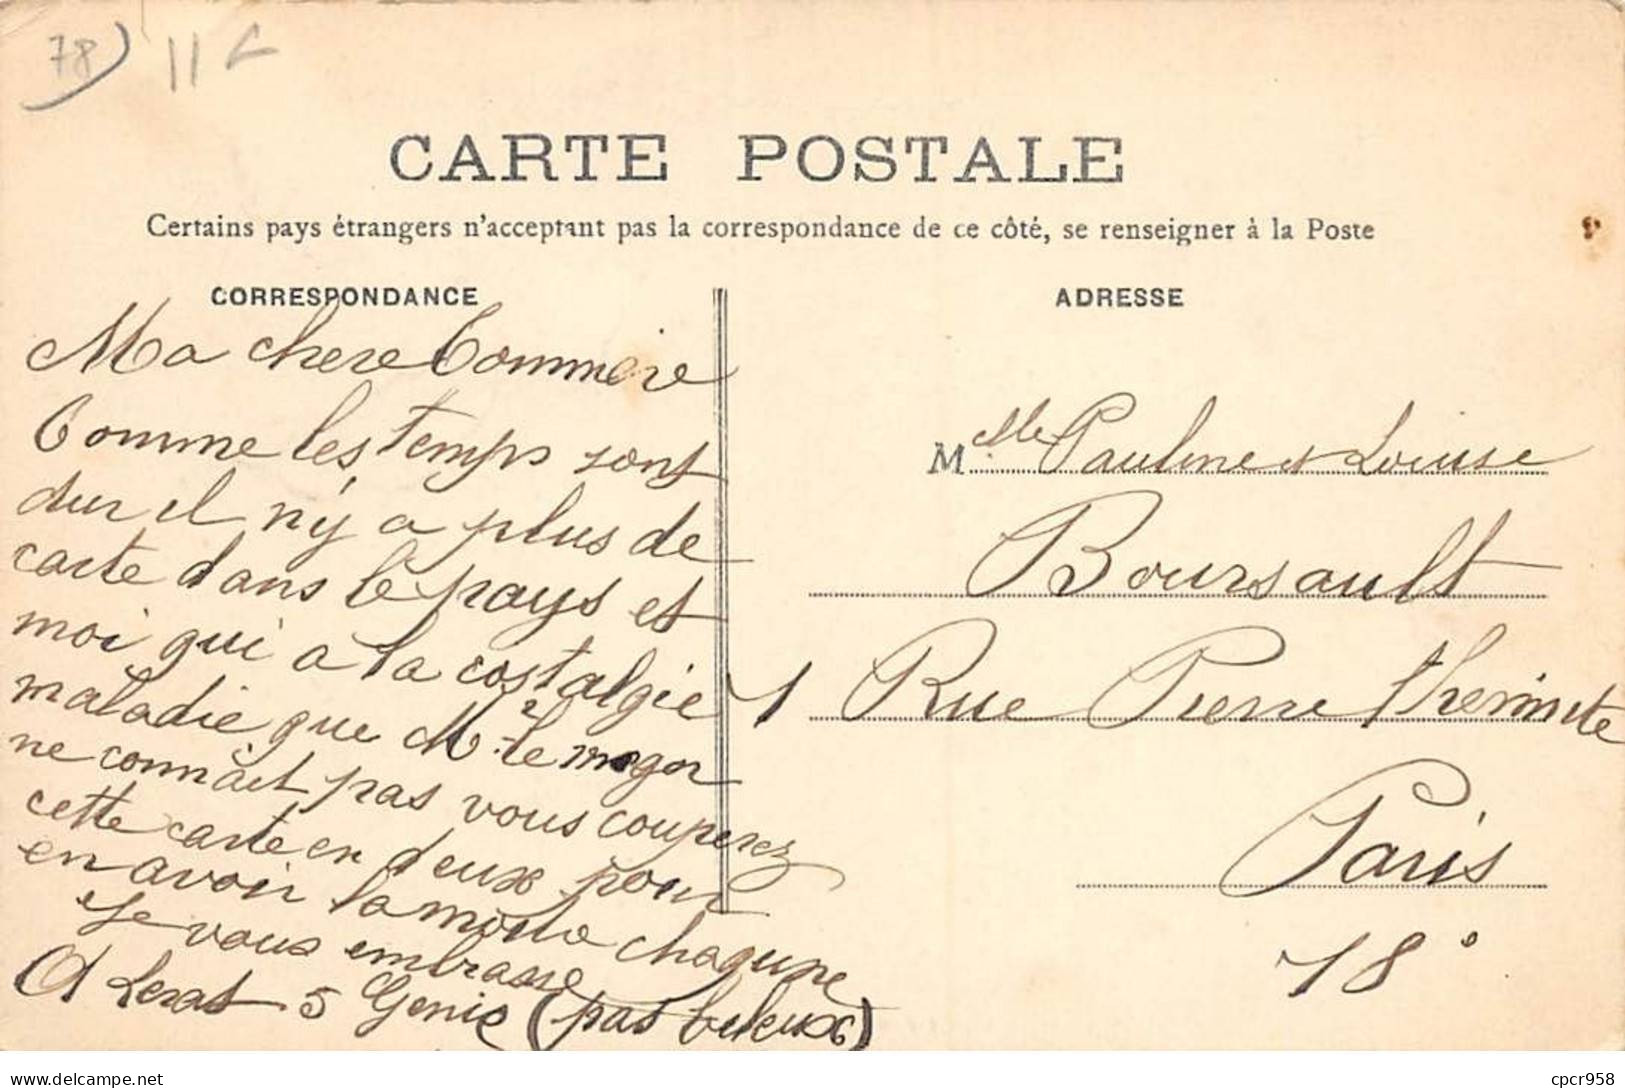 78 11
CARTE POSTALE
Certains pays étrangers n'acceptant pas la correspondance de ce côté, se renseigner à la Poste
CORRESPONDANCE
Ma chere Commere
Comme les temps sont
dur il n'y a plus de
carte dans le pays et
moi qui a la costalgie
maladie que Mr le major
ne connait pas vous couperez
cette carte en deux pour
en avoir la moitie chaqune
Je vous embrasse
A Lerat 5 Genie (pas bileux)
ADRESSE
Mlle Pauline et Louise
Boursault
1 Rue Pierre
Paris
18e
delcampe.net
cpcr958